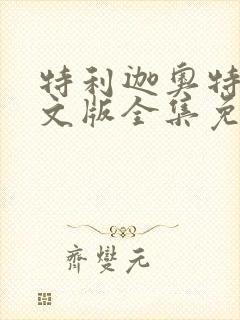 特利迦奥特
文版全集免
齊燮元